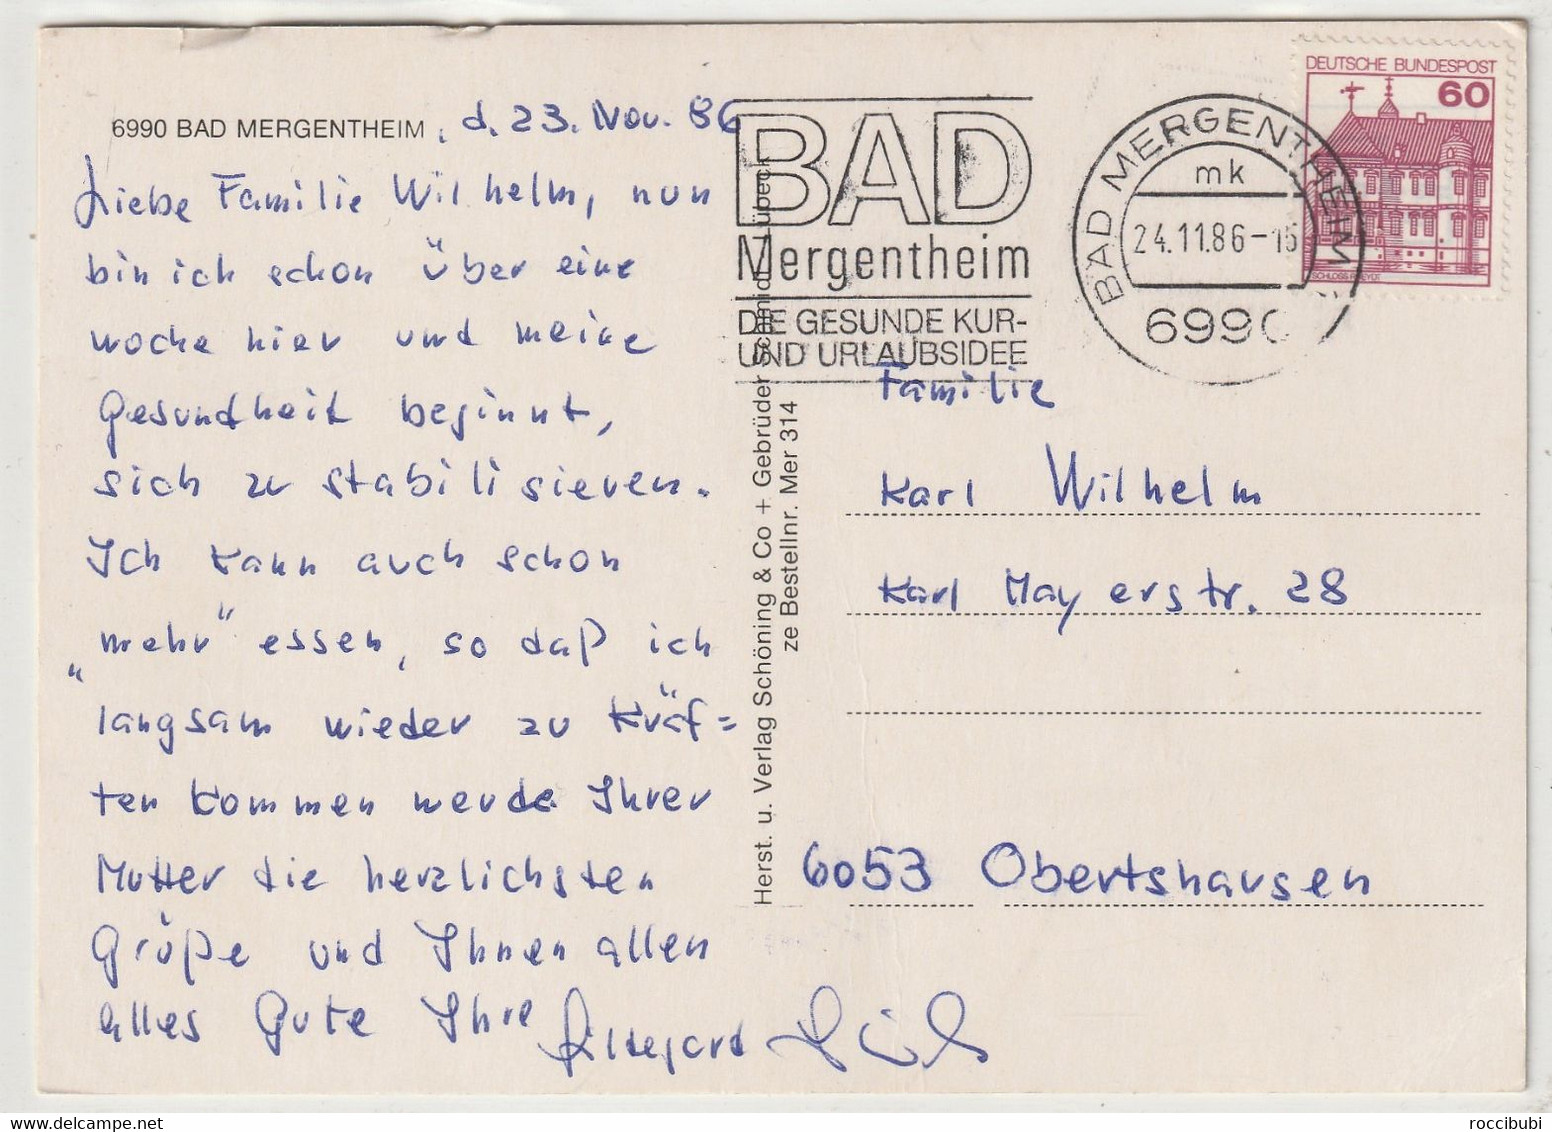 6990 BAD MERGENTHEIM, d. 23. Nov. 86
Liebe Familie Wilhelm, nun
bin ich schon über eine
woche hier und meine
Gesundheit beginnt,
sich zu stabilisieren.
Ich kann auch schon
„mehr" essen, so daß ich
langsam wieder zu Kräf=
ten kommen werde Ihrer
Mutter die herzlichsten
Grüße und Ihnen allen
alles Gute Ihre Hildegard
Herst. u. Verlag Schöning & Co + Gebrüder Schmidt, Lübeck
ze Bestellnr. Mer 314
BAD
Mergentheim
DIE GESUNDE KUR-
UND URLAUBSIDEE
BAD MERGENTHEIM
mk
24.11.86-15
6990
DEUTSCHE BUNDESPOST
60
SCHLOSS RHEYDT
Familie
Karl Wilhelm
Karl Mayerstr. 28
6053 Obertshausen
roccibubi